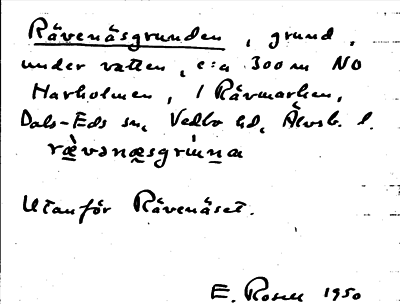 Rävenäsgrunden, grund,
under vatten, c:a 300 m NO
Harholmen, i Rävmarken,
Dals-Eds sn, Vedbo hd, Älvsb. l.
rævənæsgrunna
Utanför Rävenäset.
E. Rosell 1950